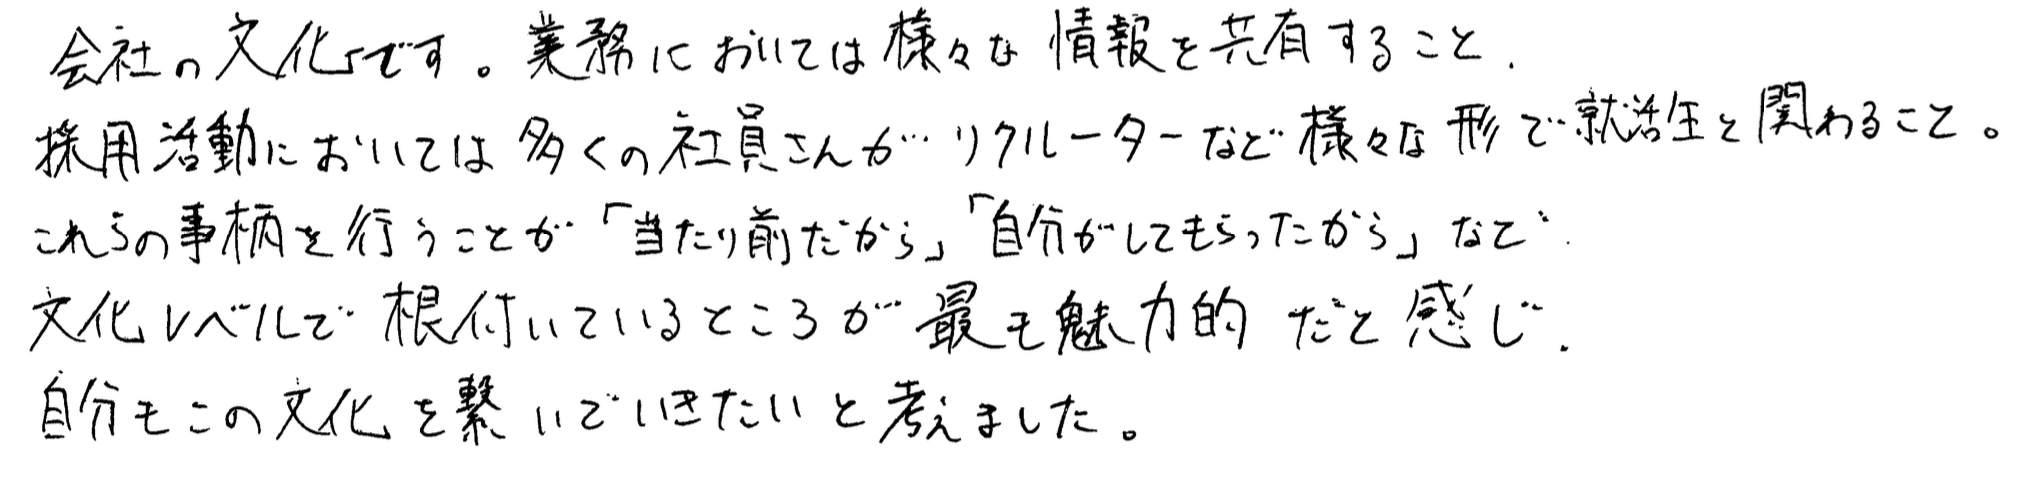 会社の文化です。業務においては様々な情報を共有すること、
採用活動においては多くの社員さんがリクルーターなど様々な形で就活生と関わること。
これらの事柄を行うことが「当たり前だから」「自分がしてもらったから」など、
文化レベルで根付いているところが最も魅力的だと感じ、
自分もこの文化を繋いでいきたいと考えました。